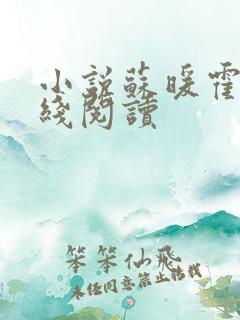 小説蘇暖霍
綫閱讀
笨笨仙飛
未經同意禁止轉載